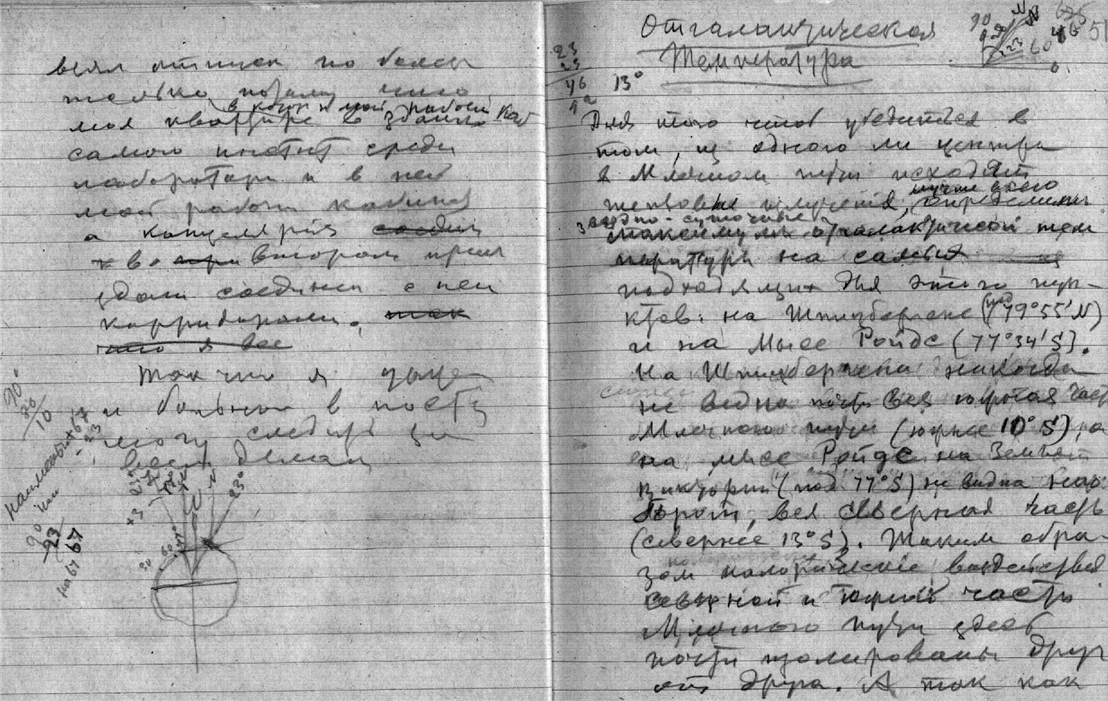 взял отпуск по болез
только потому что
моя квартира в здании
самого инстит среди
лаборатори и в ней
мой рабоч кабинет
а канцелярия
во втором
соединен с ней
корридором.
Так что я
и больной в посте
могу следить за
всем делом
23°
90
80
10
90
23
67
на 67
Отгалактическая
Температура
23
23
46
13°
90
23
60
0
51
Для того чтоб убедиться в
том, из одного ли центра
в Млечном пути исходят
тепловые излучения, лучше всего определить
звездно-суточные
максимумы отгалактической тем
пературы на самых
подходящих для этого пун-
ктов: на Шпицбергене (79°55'N)
и на Мысе Ройдс (77°34'S).
На Шпицбергене никогда
не видна почти вся южная часть
Млечного пути (южнее 10°S), а
на мысе Ройдс на Земле
Виктории (под 77°S) не видна нао
борот, вся северная часть
(севернее 13°S). Таким обра-
зом калорические воздействия
северной и южной части
Млечного пути здесь
почти изолированы друг
от друга. А так как